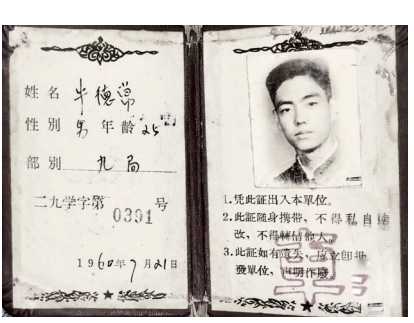 姓名 牛德常
性别 男 年龄 25
部别 九局
二九学字第 0391 号
1960年7月21日
1.凭此証出入本單位。
2.此証随身携帶，不得私自塗
改，不得轉借他人。
3.此証如有遺失，应立即报
發單位，声明作廢。